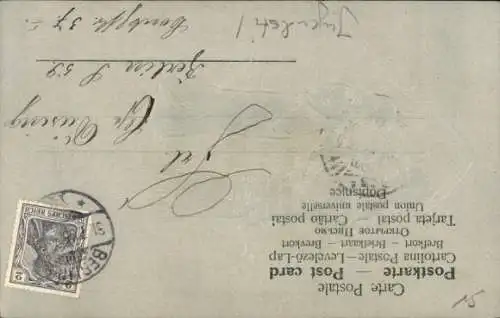 Carte Postale
Postkarte — Post card
Cartolina Postale — Levelező-Lap
Brefkort — Briefkaart — Brevkort
Открытое Письмо
Tarjeta postal — Cartão postal
Union postale universelle
Dopisnice
Frl.
Düsing
Berlin S 59
37
DEUTSCHES REICH
2
BER
15